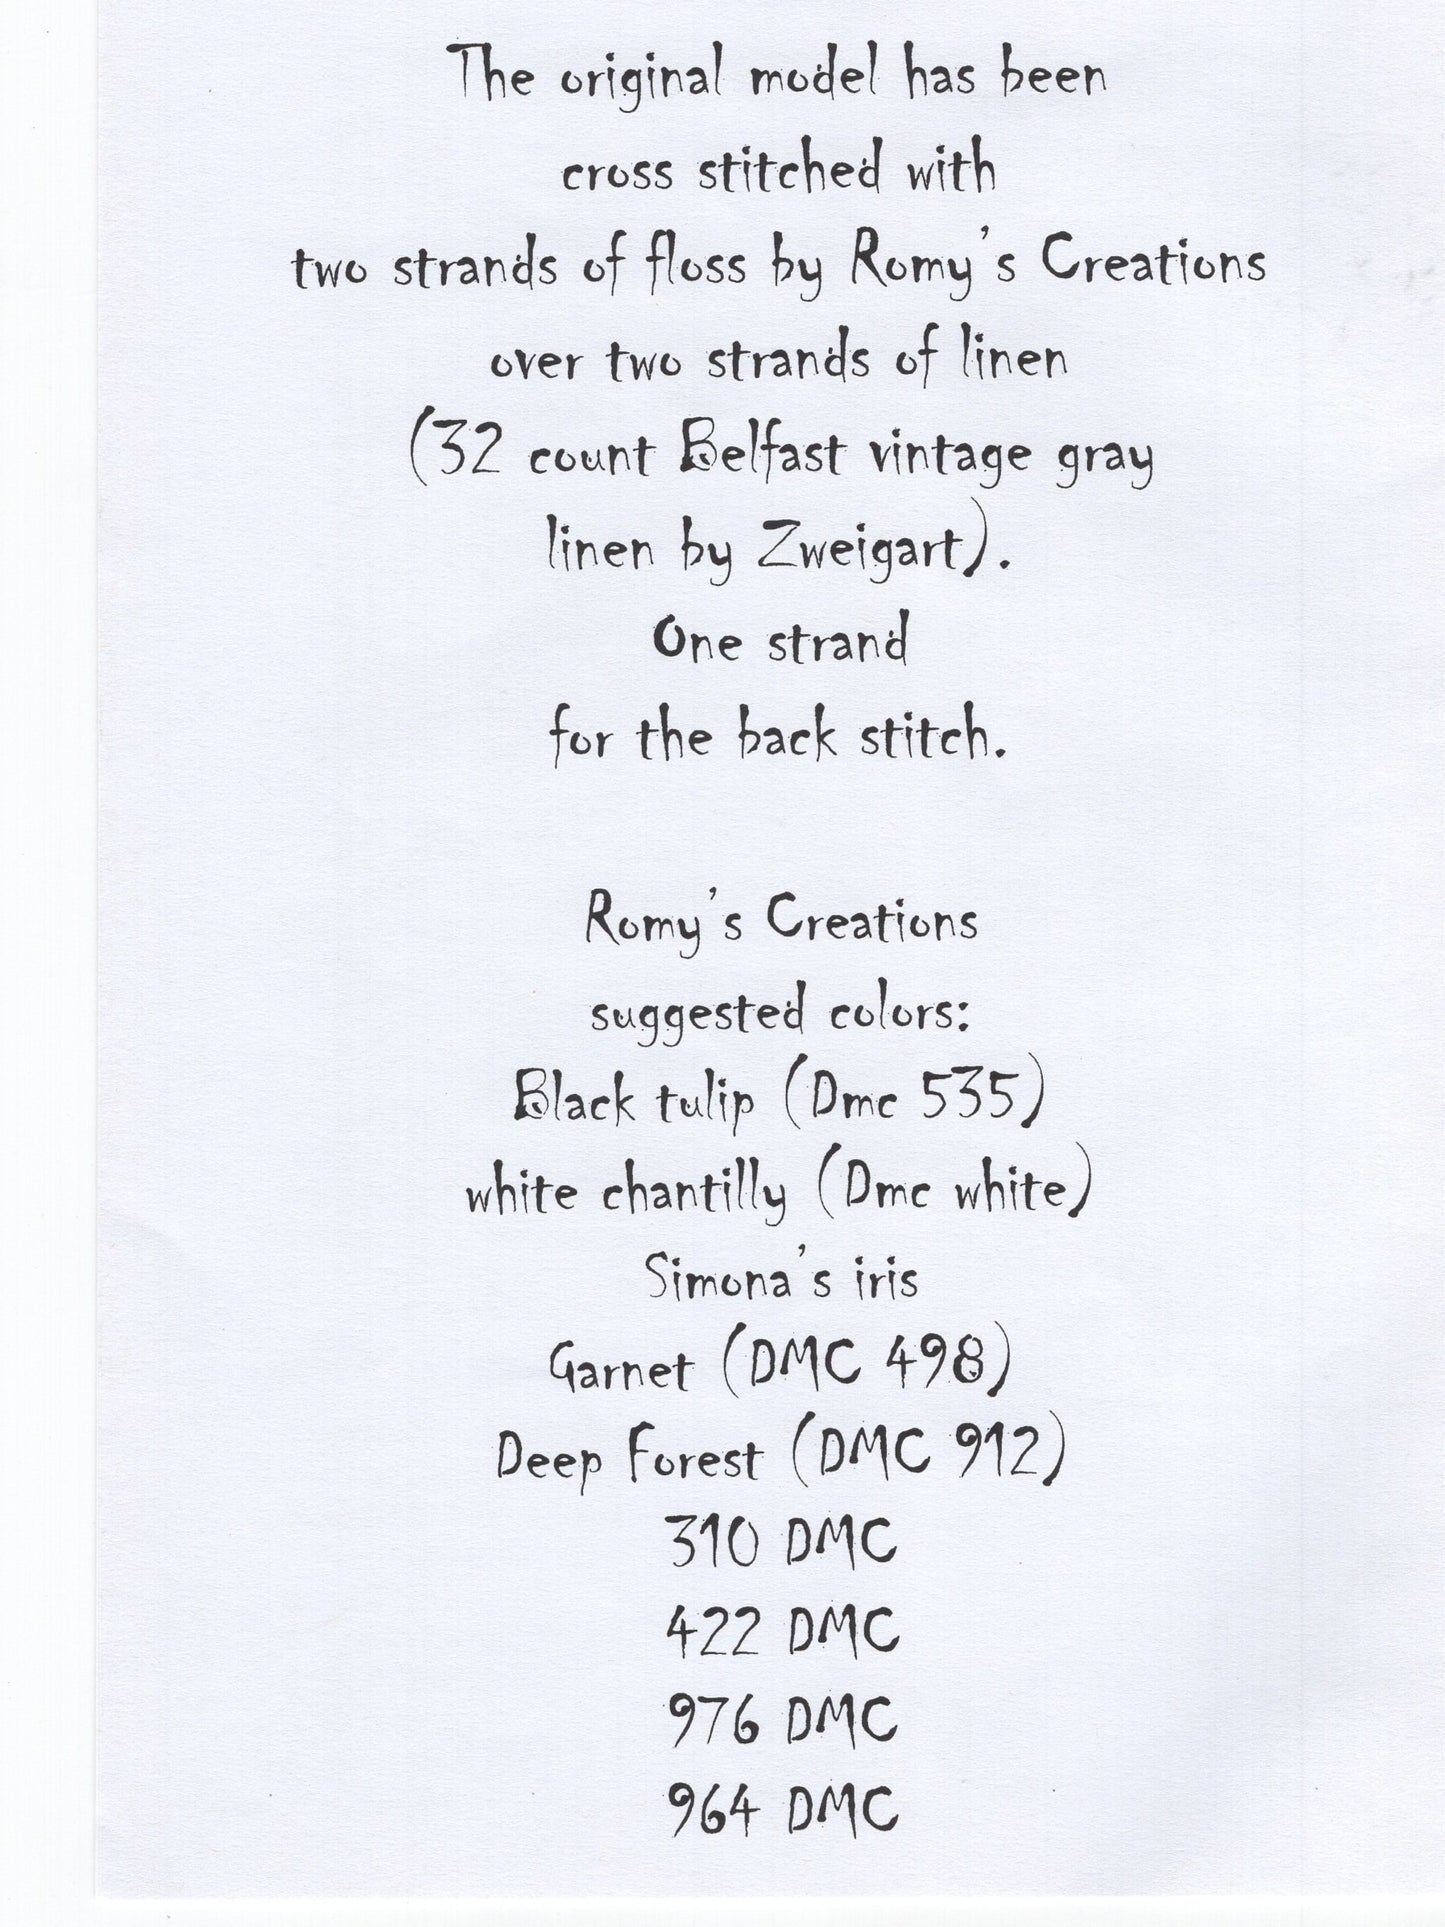 The original model has been
cross stitched with
two strands of floss by Romy's Creations
over two strands of linen
(32 count Belfast vintage gray
linen by Zweigart).
One strand
for the back stitch.
Romy's Creations
suggested colors:
Black tulip (Dmc 535)
white chantilly (Dmc white)
Simona's iris
Garnet (DMC 498)
Deep Forest (DMC 912)
310 DMC
422 DMC
976 DMC
964 DMC